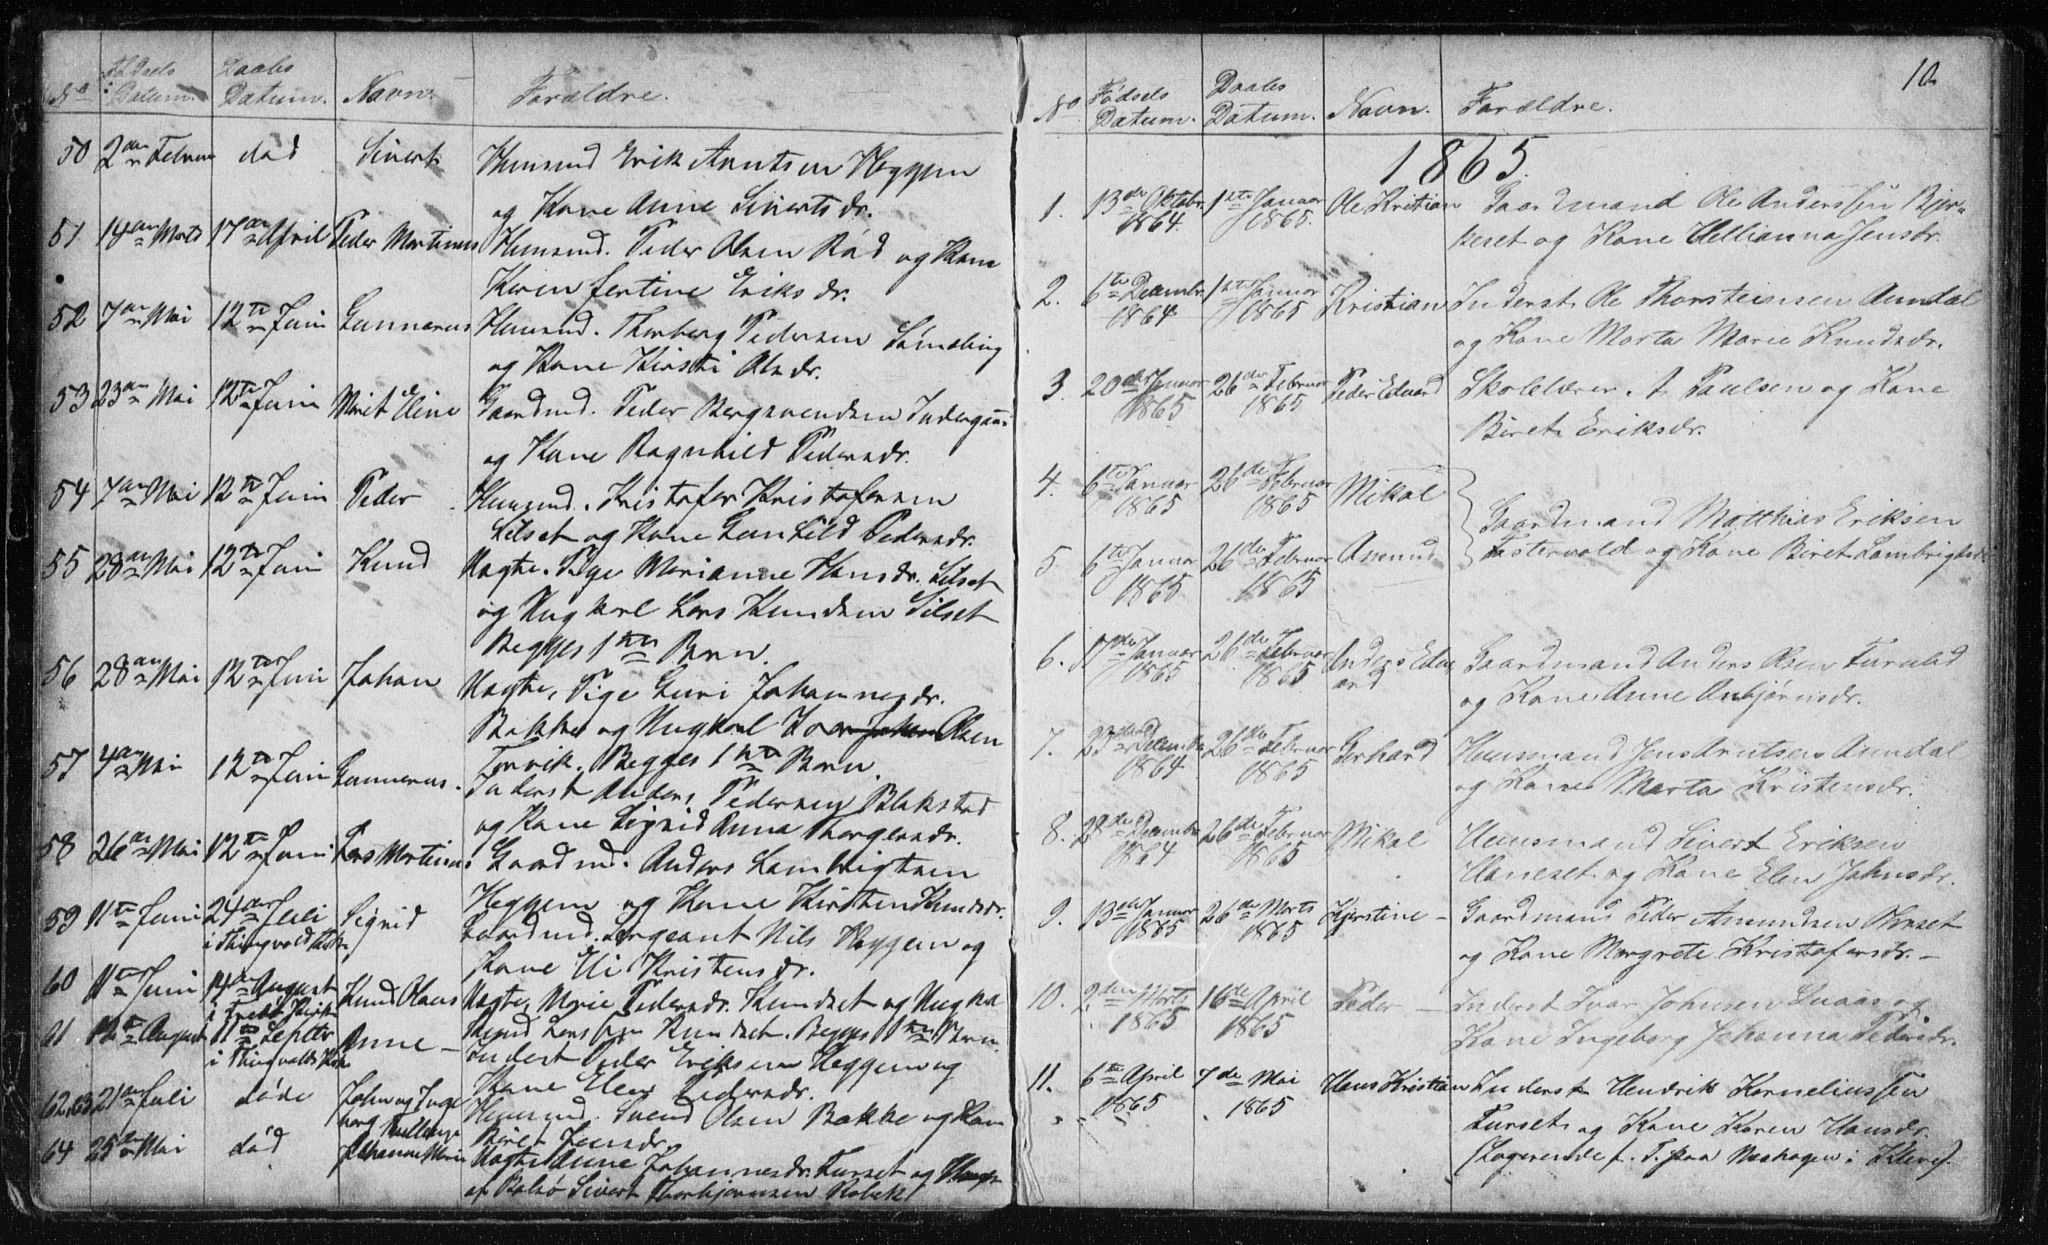 No Fødsels Datum. Daabs Datum. Navn. Forældre.
50 2den Februar død Sivert Huusmd Erik Arntsen Heggem
og Kone Anne Siverts dr.
51 14de Marts 17de April Peder Martinus Huusmd. Peder Olsen Rød og Kone
Karen Eriks dr.
52 7de Mai 12te Juni Gunnarus Huusmd. Thorberg Pedersen
og Kone Kirsti Olsdr.
53 23de Mai 12te Juni Marit Eline Gaardmd. Peder Bergsvendsen
og Kone Ragnhild Pedersdr.
54 7de Mai 12te Juni Peder Huusmd. Kristofer Kristofersen
Silset og Kone Gunhild Pedersdr.
55 28de Mai 12te Juni Knud Uægte. Pige Marianne Hansdr. Silset
og Ungkarl Lars Knudsen Silset
Begges 1ste Barn.
56 28de Mai 12te Juni Johan Uægte, Pige Guri Johannesdr.
Bakke og Ungkarl Ivar Johan Olsen
Torvik. Begges 1ste Barn.
57 4de Mai 12te Juni Gunnerus. Inderst Anders Pedersen Blakstad
og Kone Sigrid Anna Thorgersdr.
58 26de Mai 12te Juni Lars Martinus Gaardmd. Anders Lambrigtsen
Heggem og Kone Kirsten Knudsdr.
59 11te Juni 24de Juli Sigrid Gaardmd. Sergeant Nils Heggem og
i Thingvold Kirke
Kone Eli Kristensdr.
60 11te Juni 14de August Knud Olaus Uægte, Marie Pedersdr. Knudset og Ungkarl
i Kirke
Knud Larssen Knudset. Begges 1ste Barn.
61 12te August 11te Septbr Anne - Inderst Peder Eriksen Heggem og
i Thingvolds Kirke
Kone Elen Pedersdr.
62,63 21de Juli døde Johan og Inge Huusmd. Svend Olsen Bakke og Kone
borg Tvillinge
Beret Jensdr.
64 25de Mai død Johanna Marie Uægte Anne Johannesdr. Furset og
af Sivert Thorbjørnsen
10.
No. Fødsels Datum. Daabs Datum. Navn. Forældre.
1865.
1. 13de Oktobr. 1ste Januar Ole Kristian Gaardmand Ole Anderssen Bjer-
1864. 1865.
keset og Kone Ellianna Jensdr.
2. 6te Decembr. 1ste Januar Kristian Inderst Ole Thorsteinsen Aundal
1864 1865
og Kone Marta Marie Knudsdr.
3. 20de Januar 26de Februar Peder Edvard Skolelærer A. Paulsen og Kone
1865 1865
Beret Eriksdr.
4. 6te Januar 26de Februar Mikal
1865 1865
Gaardmand Matthias Eriksen
5 6te Januar 26de Februar Amund
Fastervold og Kone Beret Lambrigtsd.
1865 1865
6. 17de Januar 26de Februar Anders Edv Gaardmand Anders Olsen
1865 1865 ard
og Kone Anne Anbjørnsdr.
7. 23de Decembr 26de Februar Gerhard Huusmand Jens Arntsen Aundal
1864 1865
og Kone Marta Kristensdr.
8. 28de Decembr 26de Februar Mikal Huusmand Sivert Eriksen
1864 1865
og Kone Elen Johnsdr.
9. 13de Januar 26de Marts Kjerstine - Gaardmand Peder Amundsen
1865 1865
og Kone Margrete Kristofersdr. -
10. 2den Marts 16de April Peder - Inderst Ivar Johnsen og
1865 1865
Kone Ingeborg Johanna Pedersdr.
11. 6te April 7de Mai Hans Kristian Inderst Hendrik Korneliussen
1865 1865
Furset og Kone Karen Hansdr.
(Logerende f. T. paa i Kleve).